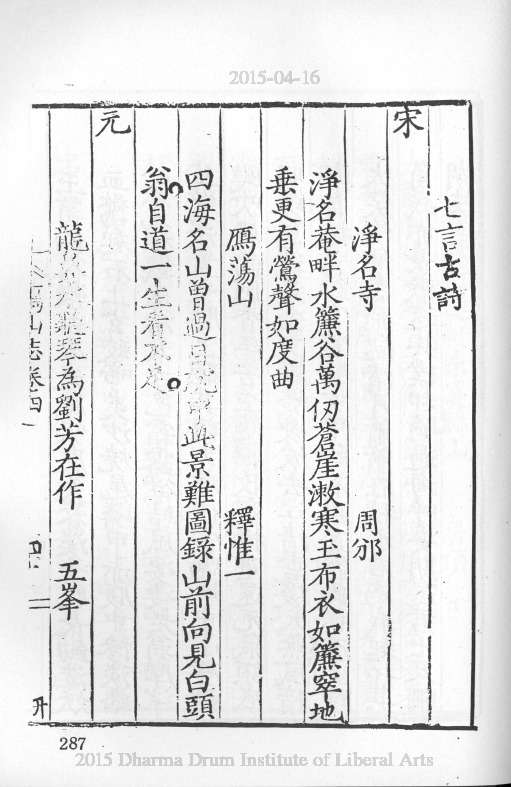 2015-04-16
七言古詩
宋
淨名寺 周邠
淨名菴畔水簾谷萬仞蒼崖漱寒玉布衣如簾窣地
垂更有鶯聲如度曲
鴈蕩山 釋惟一
四海名山曾過目就中此景難圖錄山前向見白頭
翁自道一生看不足
元
龍 琴為劉芳在作 五峯
山志卷四
287
2015 Dharma Drum Institute of Liberal Arts